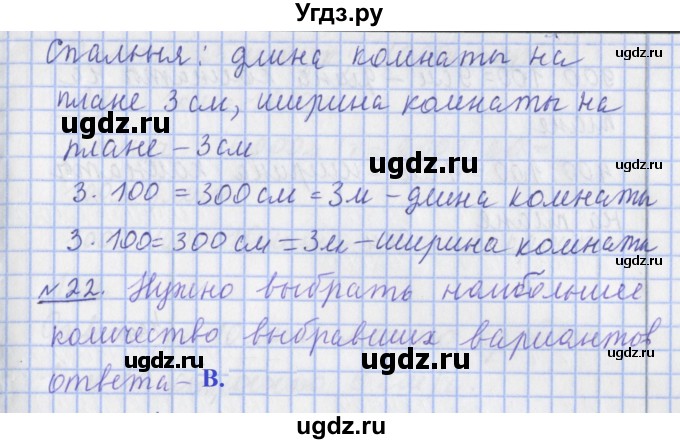 Угдз.ру
Спальня: длина комнаты на
плане 3 см, ширина комнаты на
плане – 3 см
3 · 100 = 300 см = 3 м – длина комнаты
3 · 100 = 300 см = 3 м – ширина комнаты
№ 22. Нужно выбрать наибольшее
количество выбравших вариантов
ответа – В.
ugdz.ru
ugdz.ru
ugdz.ru
ugdz.ru
ugdz.ru
ugdz.ru
ugdz.ru
ugdz.ru
ugdz.ru
ugdz.ru
ugdz.ru
ugdz.ru